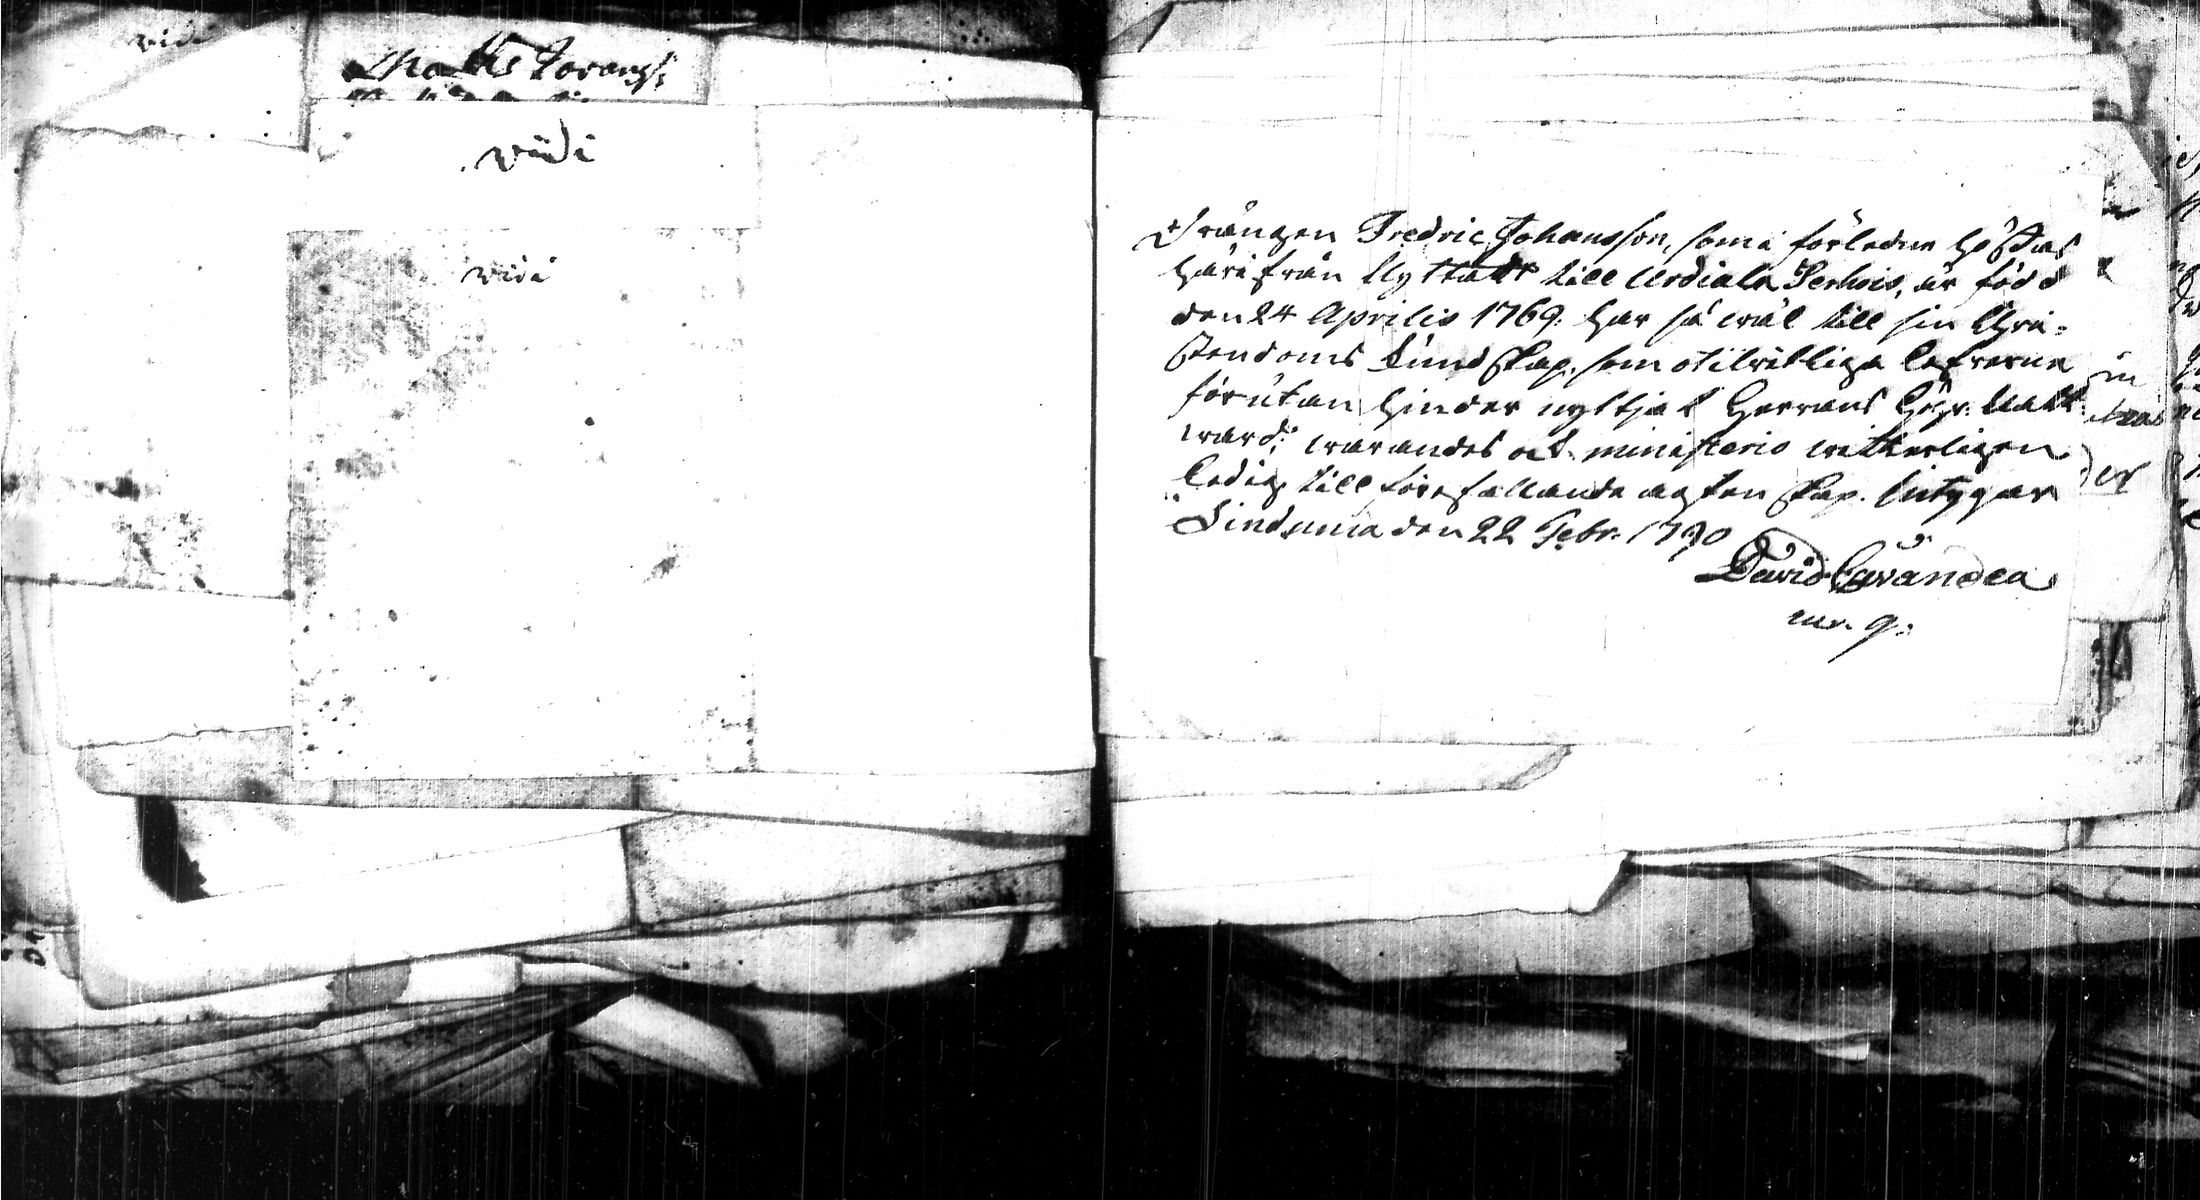 vidi
vidi
vidi
Drängen Fredric Johansson, som i förledne höstas
härifrån flyttadt till Urdiala Sockn, är född
den 24 Aprilis 1769. har så wäl till sin Chri-
stendoms kundskap, som otilwitliga lefwerne
förutan hinder nyttjat Herrans Högv: Natt-
ward; warandes ock ministerio witterligen
ledig till förefallande agtenskap. Intygar
den 22 Febr. 1790
David
mp.